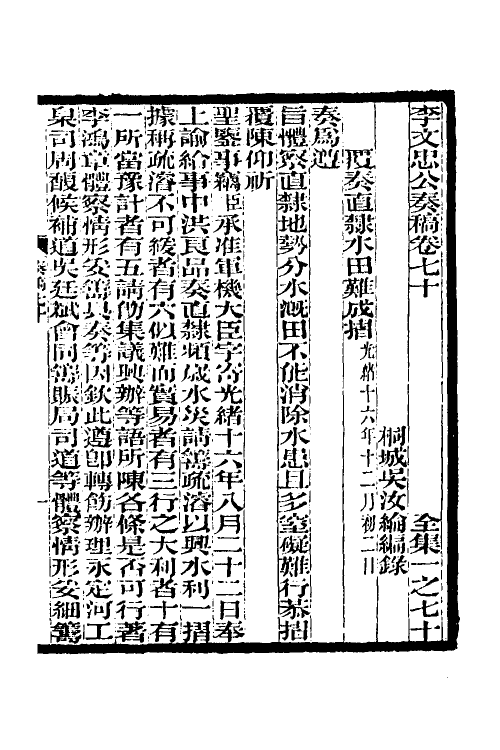 李文忠公奏稿卷七十 全集一之七十
桐城吳汝綸編錄
覆奏直隸水田難成摺 光緒十六年十二月初二日
奏爲遵
旨體察直隸地勢分水漑田不能消除水患且多窒礙難行恭摺
覆陳仰祈
聖鑒事竊臣承准軍機大臣字寄光緒十六年八月二十二日奉
上諭給事中洪良品奏直隸頻歲水災請籌疏濬以興水利一摺
據稱疏濬不可緩者有六似難而實易者有三行之大利者十有
一所當豫計者有五請飭集議興辦等語所陳各條是否可行著
李鴻章體察情形妥籌具奏等因欽此遵卽轉飭辦理永定河工
臬司周馥候補道吳廷斌會同籌賑局司道等體察情形妥細籌
奏稿七十 一